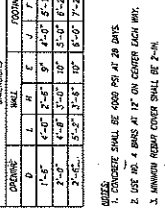 OPENING WALL FOOTIN
D L H E J F
1'-6" 4'-0" 2'-6" 9" 4'-0"
2'-0" 4'-8" 3'-0" 10" 5'-0" 6'-2
2'-6" 5'-4" 3'-6" 10" 6'-0" 7'-2
NOTES:
1. CONCRETE SHALL BE 4000 PSI AT 28 DAYS.
2. USE NO. 4 BARS AT 12" ON CENTER EACH WAY.
3. MINIMUM REBAR COVER SHALL BE 2-IN.